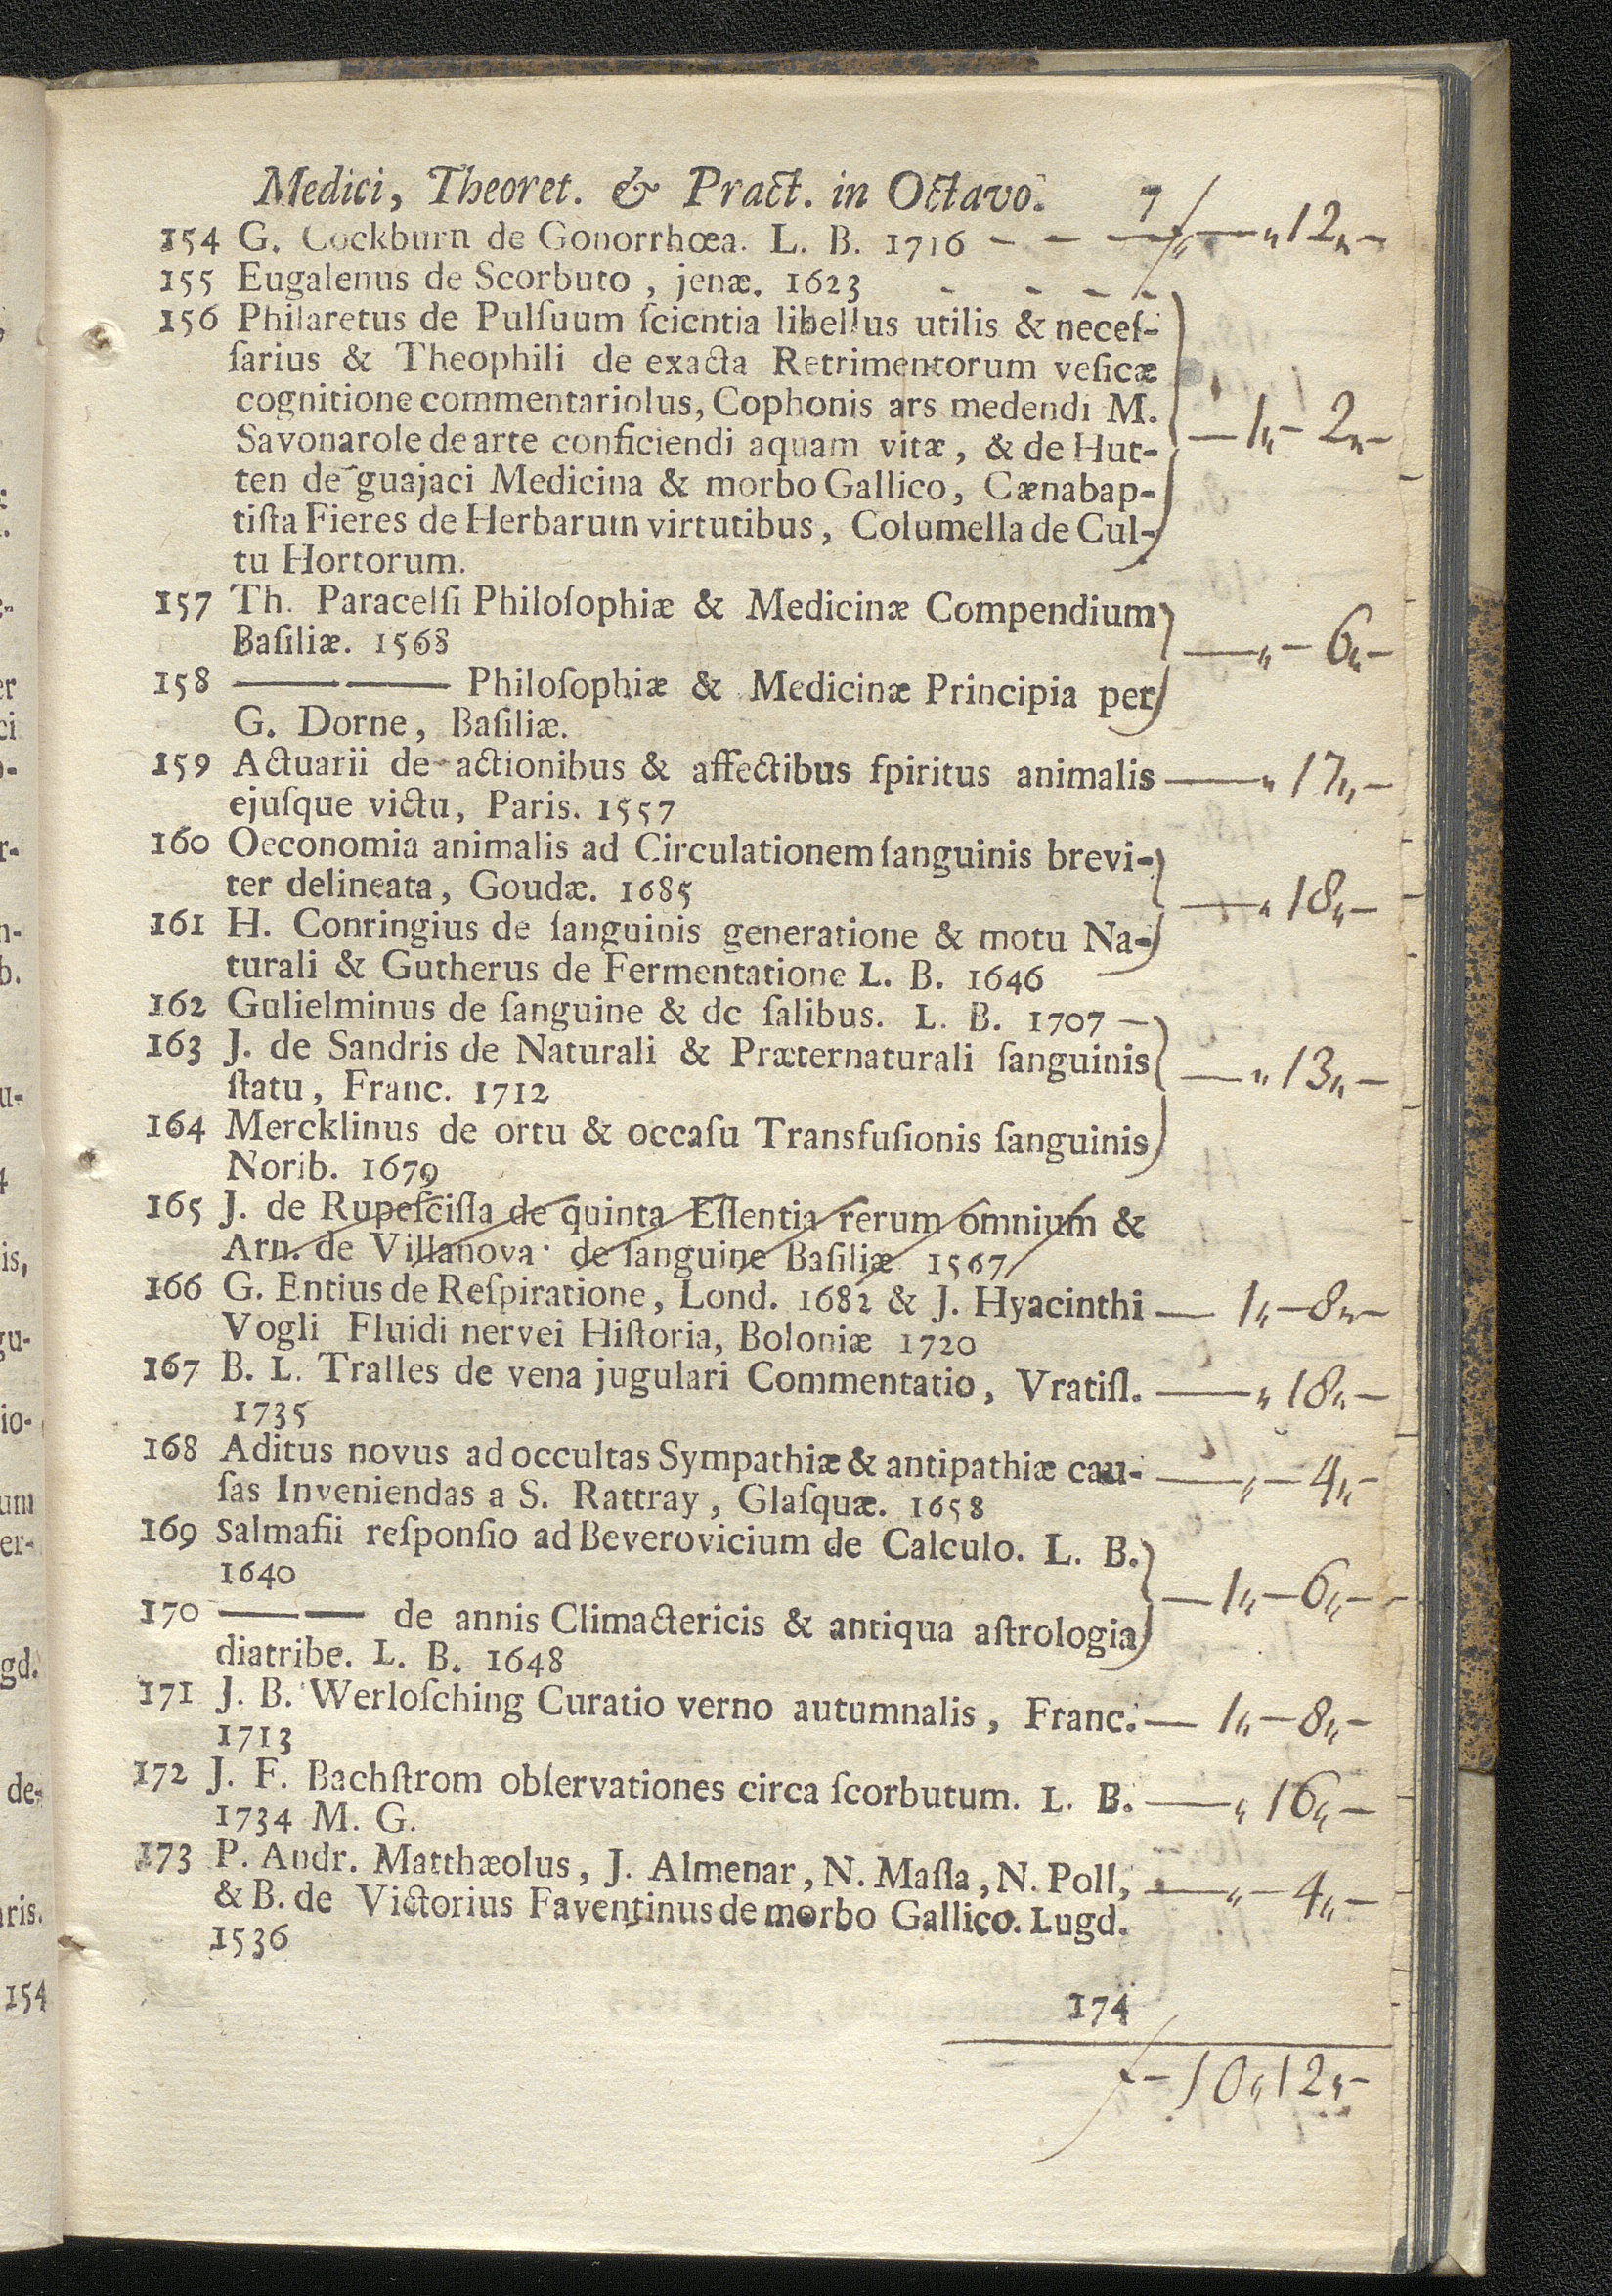 Medici, Theoret. & Pract. in Octavo. 7
154 G. Cockburn de Gonorrhœa. L. B. 1716 - - — „12„-
155 Eugalenus de Scorbuto, jenæ. 1623 - - - -
156 Philaretus de Pulſuum ſcientia libellus utilis & neceſ-
ſarius & Theophili de exacta Retrimentorum veſicæ
cognitione commentariolus, Cophonis ars medendi M.
Savonarole de arte conficiendi aquam vitæ, & de Hut- —1„-2„-
ten de guajaci Medicina & morbo Gallico, Cænabap-
tiſta Fieres de Herbarum virtutibus, Columella de Cul-
tu Hortorum.
157 Th. Paracelſi Philoſophiæ & Medicinæ Compendium
Baſiliæ. 1568 —„-6„-
158 —— —— Philoſophiæ & Medicinæ Principia per
G. Dorne, Baſiliæ.
159 Actuarii de actionibus & affectibus ſpiritus animalis —„17„-
ejuſque victu, Paris. 1557
160 Oeconomia animalis ad Circulationem ſanguinis brevi-
ter delineata, Goudæ. 1685 —„18„-
161 H. Conringius de ſanguinis generatione & motu Na-
turali & Gutherus de Fermentatione L. B. 1646
162 Gulielminus de ſanguine & de ſalibus. L. B. 1707 —
163 J. de Sandris de Naturali & Præternaturali ſanguinis —„13„-
ſtatu, Franc. 1712
164 Mercklinus de ortu & occaſu Transfuſionis ſanguinis
Norib. 1679
165 J. de Rupeſciſſa de quinta Eſſentia rerum omnium &
Arn. de Villanova de ſanguine Baſiliæ 1567
166 G. Entius de Reſpiratione, Lond. 1682 & J. Hyacinthi — 1„-8„-
Vogli Fluidi nervei Hiſtoria, Boloniæ 1720
167 B. L. Tralles de vena jugulari Commentatio, Vratiſl. —„18„-
1735
168 Aditus novus ad occultas Sympathiæ & antipathiæ cau- —„-4„-
ſas Inveniendas a S. Rattray, Glaſquæ. 1658
169 Salmaſii reſponſio ad Beverovicium de Calculo. L. B.
1640 —1„-6„-
170 —— —— de annis Climactericis & antiqua aſtrologia
diatribe. L. B. 1648
171 J. B. Werloſching Curatio verno autumnalis, Franc. — 1„-8„-
1713
172 J. F. Bachſtrom obſervationes circa ſcorbutum. L. B. —„16„-
1734 M. G.
173 P. Andr. Matthæolus, J. Almenar, N. Maſſa, N. Poll, —„-4„-
& B. de Victorius Faventinus de morbo Gallico. Lugd.
1536
174
ƒ-10„12„-